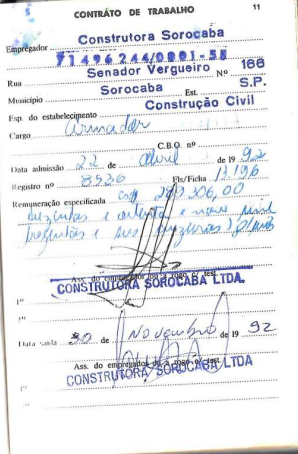 CONTRATO DE TRABALHO 11
Empregador Construtora Sorocaba
71496244/0001-58
Rua Senador Vergueiro Nº 166
Município Sorocaba Est. S.P.
Esp. do estabelecimento Construção Civil
Cargo Armador
C.B.O. nº
Data admissão 22 de Abril de 19 92
Registro nº 8936 Fls/Ficha 13.196
Remuneração especificada 289.306,00
duzentos e oitenta e nove mil
trezentos e seis cruzeiros p/mês
Ass. do empregador ou a rogo c/ test.
CONSTRUTORA SOROCABA LTDA.
1º
2º
Data saída 30 de Novembro de 19 92
Ass. do empregador ou a rogo c/ test.
CONSTRUTORA SOROCABA LTDA
1º
2º